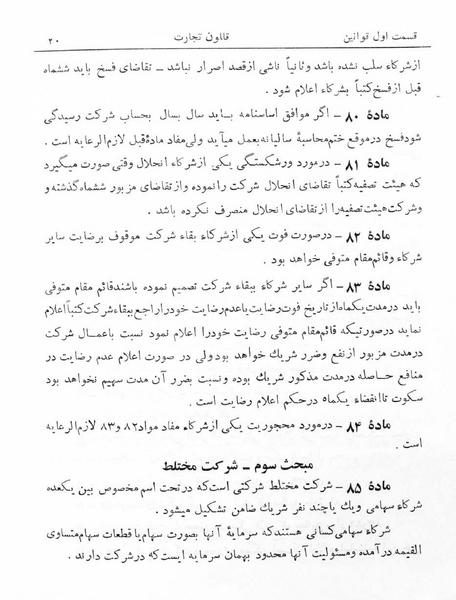 قسمت اول قوانین
قانون تجارت
۲۰
از شرکاء سلب نشده باشد و ثانیاً ناشی از قصد اصرار نباشد – تقاضای فسخ باید ششماه
قبل از فسخ کتباً بشرکاء اعلام شود .
مادهٔ ۸۰ – اگر موافق اساسنامه باید سال بسال بحساب شرکت رسیدگی
شود فسخ در موقع ختم محاسبهٔ سالیانه بعمل میآید ولی مفاد مادهٔ قبل لازم الرعایه است .
مادهٔ ۸۱ – در مورد ورشکستگی یکی از شرکاء انحلال وقتی صورت میگیرد
که هیئت تصفیه کتباً تقاضای انحلال شرکت را نموده و از تقاضای مزبور ششماه گذشته و
و شرکت هیئت تصفیه را از تقاضای انحلال منصرف نکرده باشد .
مادهٔ ۸۲ – در صورت فوت یکی از شرکاء بقاء شرکت موقوف برضایت سایر
شرکاء و قائم مقام متوفی خواهد بود .
مادهٔ ۸۳ – اگر سایر شرکاء ببقاء شرکت تصمیم نموده باشند قائم مقام متوفی
باید در مدت یکماه از تاریخ فوت رضایت یا عدم رضایت خود را راجع ببقاء شرکت کتباً اعلام
نماید در صورتیکه قائم مقام متوفی رضایت خود را اعلام نمود نسبت باعمال شرکت
در مدت مزبور از نفع و ضرر شریك خواهد بود ولی در صورت اعلام عدم رضایت در
منافع حاصله در مدت مذکور شریك بوده و نسبت بضرر آن مدت سهیم نخواهد بود
سکوت تا انقضاء یکماه در حکم اعلام رضایت است .
مادهٔ ۸۴ – در مورد محجوریت یکی از شرکاء مفاد مواد ۸۲ و ۸۳ لازم الرعایه
است .
مبحث سوم – شرکت مختلط
مادهٔ ۸۵ – شرکت مختلط شرکتی است که در تحت اسم مخصوص بین یکعده
شرکاء سهامی و یك یا چند نفر شریك ضامن تشکیل میشود .
شرکاء سهامی کسانی هستند که سرمایهٔ آنها بصورت سهام یا قطعات سهام متساوی
القیمه در آمده و مسئولیت آنها محدود بهمان سرمایه ایست که در شرکت دارند .